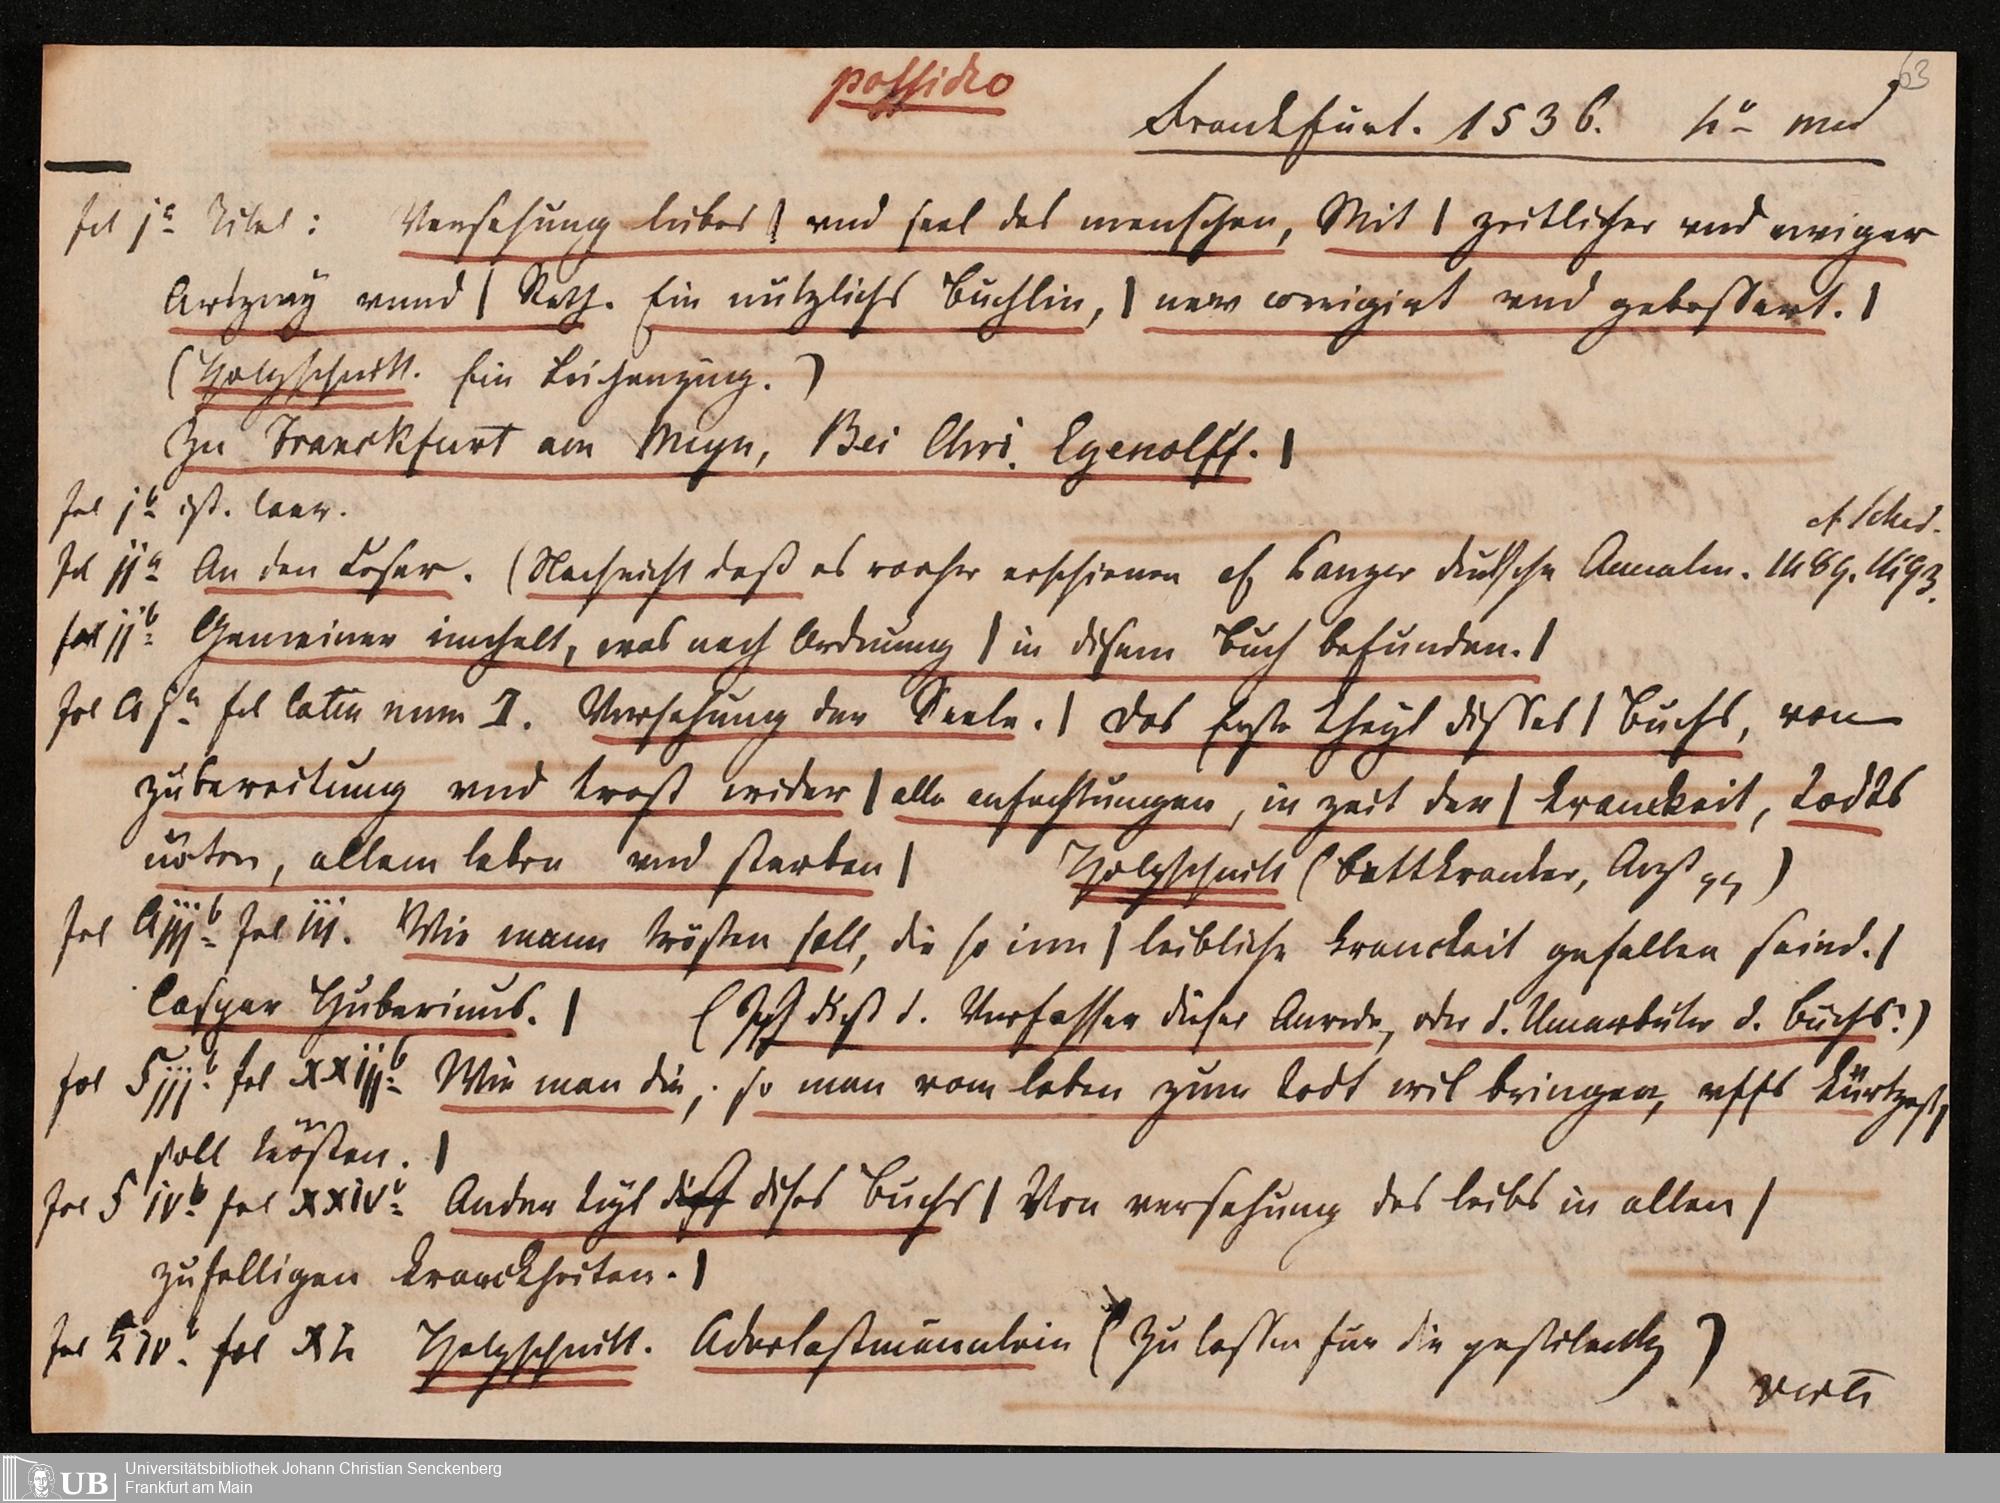 63
possideo
Frankfurt. 1536. med
fol jª Titel: Versehung leibes | vnd seel des menschen, Mit | zeitlicher vnd ewiger
Artzney vnnd | Kein nutzlichs Buchlin, | new corrigirt vnd gebessert. |
(Holzschnitt. Ein Leichenzug.)
Zu Franckfurt am Meyn, Bei Chri. Egenolff. |
fol jᵇ ist leer.
cf Sched.
fol jjª An den Leser. (Nachricht daß es vorher erschienen cf Panzer deutsche Annalen. 1489. 1493.
fol jjᵇ Gemeiner innhalt, was nach Ordnung | in disem Buch befunden. |
fol A jª fol latin num I. Versehung der Seele. | Das Erste theyl disses | Buchs, von
zubereitung vnd trost wider | alle anfechtungen, in zeit der | kranckeit, todts
nöten, allem leben vnd sterben | Holzschnitt (Bettkranker, Arzt)
fol Ajjjᵇ fol iij. Wie mann trösten soll, die so inn | leibliche kranckeit gefallen seind. |
Caspar Huberinus. | (Ist dieß d. Verfasser dieser Anrede, oder d. Umarbeiter d. Buchs?)
fol Fjjjᵇ fol xxiijᵇ Wie man die, so man vom leben zum todt wil bringen, vffs kürtzest,
soll trösten. |
fol F ivᵇ fol xxivᵇ Ander teyl dises Buchs | Von versehung des leibs in allen |
zufelligen kranckheiten. |
fol K ivᵇ fol XL Holzschnitt. Aderlaßmännlein (Zu lassen fur die pestilentz)
verte
UB
Universitätsbibliothek Johann Christian Senckenberg
Frankfurt am Main